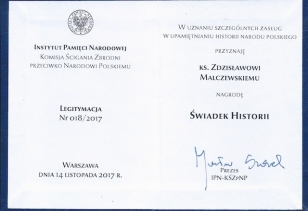 Instytut Pamięci Narodowej
Komisja Ścigania Zbrodni
przeciwko Narodowi Polskiemu
Legitymacja
Nr 018/2017
Warszawa
dnia 14 listopada 2017 r.
W uznaniu szczególnych zasług
w upamiętnianiu historii narodu polskiego
przyznaję
ks. Zdzisławowi
Malczewskiemu
nagrodę
Świadek Historii
Prezes
IPN-KŚZpNP